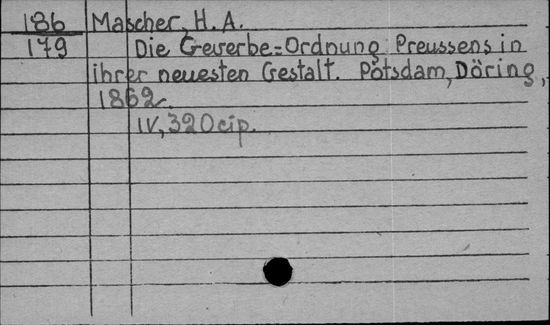 186 Mascher, H. A.
179 Die Gewerbe=Ordnung Preussens in
ihrer neuesten Gestalt. Potsdam, Döring,
1862.
IV, 320 cip.